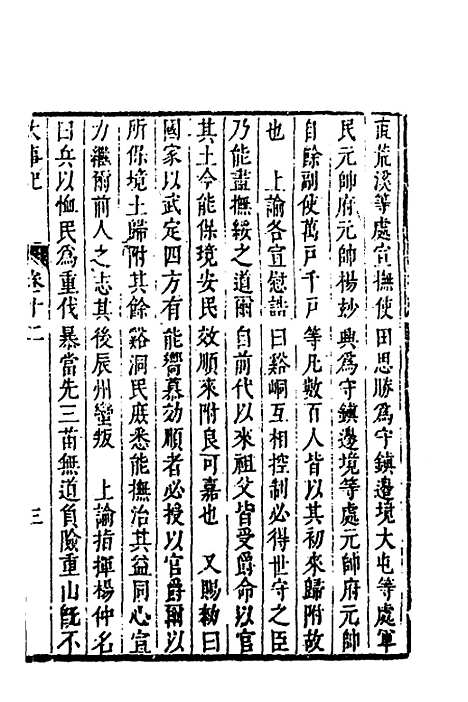 直荒溪等處宣撫使田思勝為守鎮邊境大屯等處軍
民元帥府元帥楊妙興為守鎮邊境等處元帥府元帥
自餘副使萬戶千戶等凡數百人皆以其初來歸附故
也　上諭各宣慰誥曰谿峒互相控制必得世守之臣
乃能盡撫綏之道爾自前代以來祖父皆受爵命以官
其土今能保境安民效順來附良可嘉也　又賜勑曰
國家以武定四方有能嚮慕効順者必授以官爵爾以
所保境土歸附其餘谿洞民庶悉能撫治其益同心宣
力繼爾前人之志其後辰州蠻叛　上諭指揮楊仲名
曰兵以恤民為重伐暴當先三苗無道負險重山旣不
大事記　卷十二　三